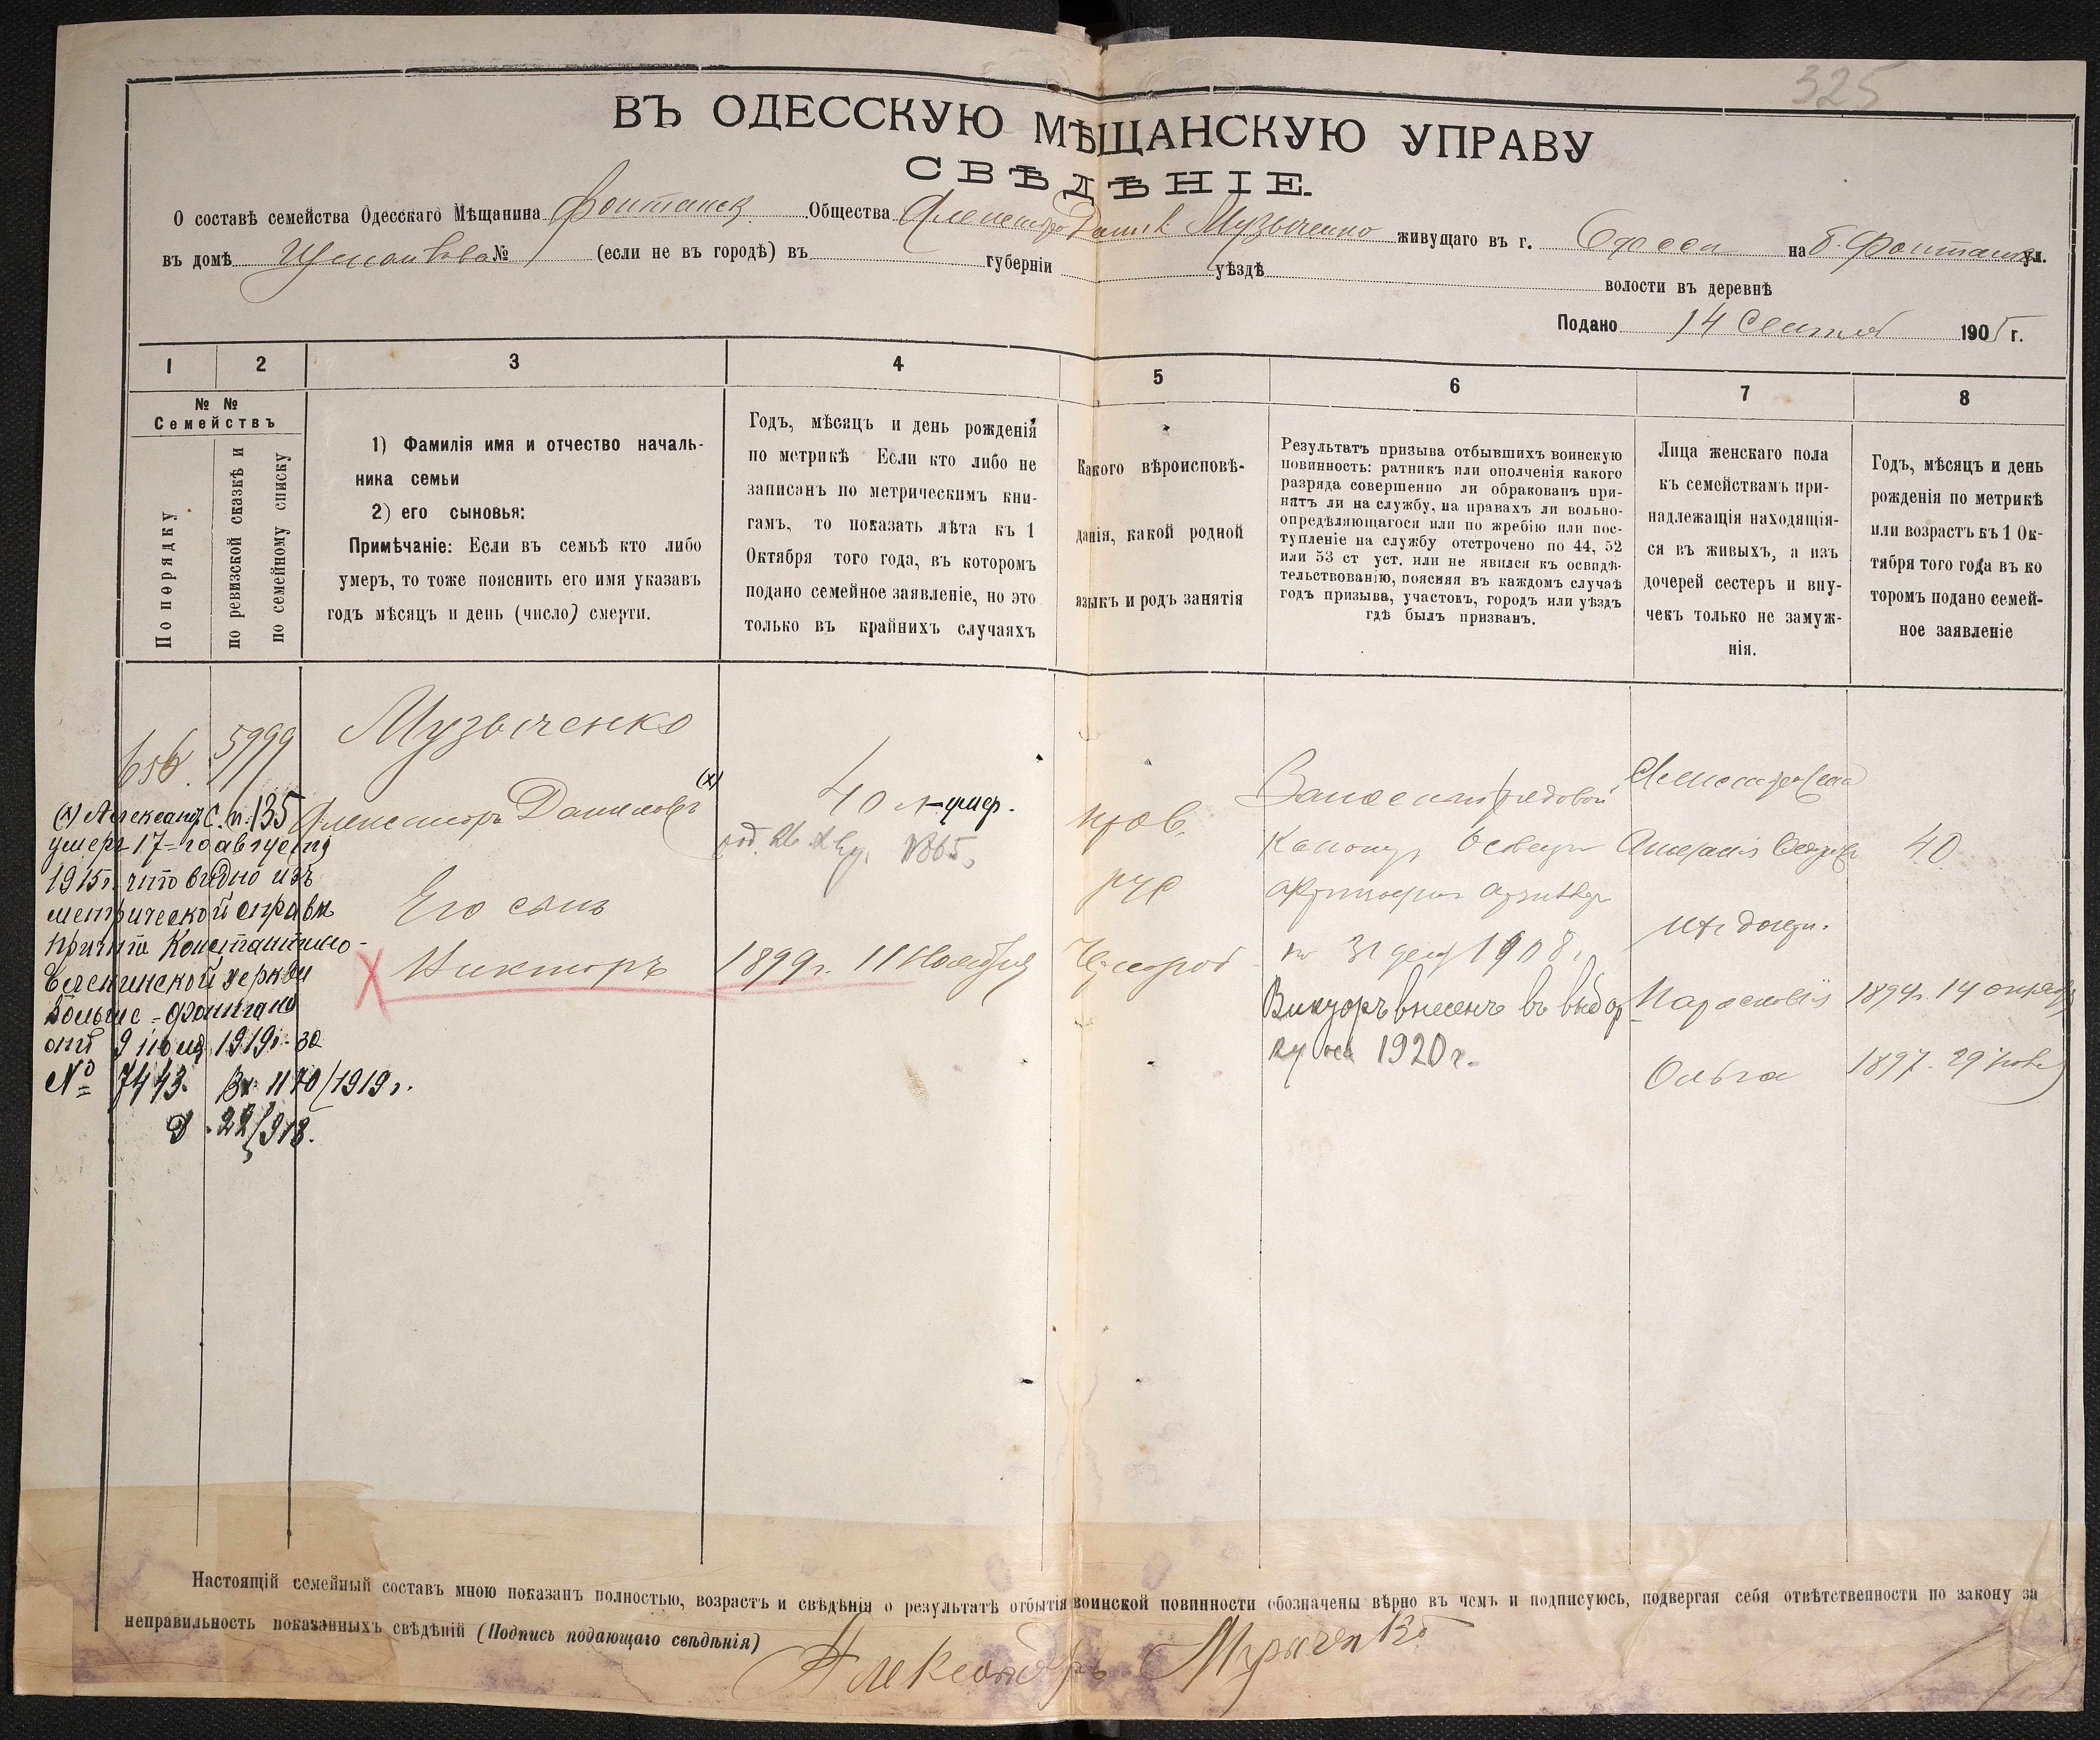 325
ВЪ ОДЕССКУЮ МѢЩАНСКУЮ УПРАВУ
СВѢДѢНІЕ.
О составѣ семейства Одесскаго Мѣщанина Фонтанск. Общества Александра Данил. Музыченко живущаго въ г. Одессѣ на Б. Фонтанѣ ул.
въ домѣ № (если не въ городѣ) въ губерніи уѣздѣ волости въ деревнѣ
Подано 14 Сентяб 1905 г.
1 2 3 4 5 6 7 8
№ №
Семействъ
По порядку
по ревизской сказкѣ и
по семейному списку
1) Фамилія имя и отчество началь-
ника семьи
2) его сыновья:
Примѣчаніе: Если въ семьѣ кто либо
умеръ, то тоже пояснить его имя указавъ
годъ мѣсяцъ и день (число) смерти.
Годъ, мѣсяцъ и день рожденія
по метрикѣ Если кто либо не
записанъ по метрическимъ кни-
гамъ, то показать лѣта къ 1
Октября того года, въ которомъ
подано семейное заявленіе, но это
только въ крайнихъ случаяхъ
Какого вѣроисповѣ-
данія, какой родной
языкъ и родъ занятія
Результатъ призыва отбывшихъ воинскую
повинность: ратникъ или ополченія какого
разряда совершенно ли обракованъ при-
нятъ ли на службу, на правахъ ли вольно-
опредѣляющагося или по жребію или пос-
тупленіе на службу отстрочено по 44, 52
или 53 ст уст. или не явился къ освидѣ-
тельствованію, поясняя въ каждомъ случаѣ
годъ призыва, участокъ, городъ или уѣздъ
гдѣ былъ призванъ.
Лица женскаго пола
къ семействамъ при-
надлежащія находящія-
ся въ живыхъ, а изъ
дочерей сестеръ и вну-
чекъ только не замуж-
нія.
Годъ, мѣсяцъ и день
рожденія по метрикѣ
или возрастъ къ 1 Ок-
тября того года въ ко
торомъ подано семей-
ное заявленіе
656. 5999
Музыченко
Александръ Даниловъ (х)
40 л умер.
род. 26 1865
Его сынъ
Х Викторъ
1899 г. 11 Ноября
прав.
рус
Чернораб
Запасный рядовой
по 31 дек 1908 г.
Викторъ внесенъ въ выбор
1920 г.
Александра жена
40
их дочери.
Параскевія 1894 г. 14 октября
Ольга 1897. 29 нояб
(х) Александ. с. п. 135
умеръ 17-го августа
1915 г. что видно изъ
метрической справки
причта Константино-
Еленинской церкви
Больше-Фонтана
отъ 9 1919 г. за
№ 7443. Вх. 1170/1919 г.
22/918.
Настоящій семейный составъ мною показанъ полностью, возрастъ и свѣдѣнія о результатѣ отбытія воинской повинности обозначены вѣрно въ чемъ и подписуюсь, подвергая себя отвѣтственности по закону за
неправильность показанныхъ свѣдѣній (Подпись подающаго свѣдѣнія)
Александръ Музыченко